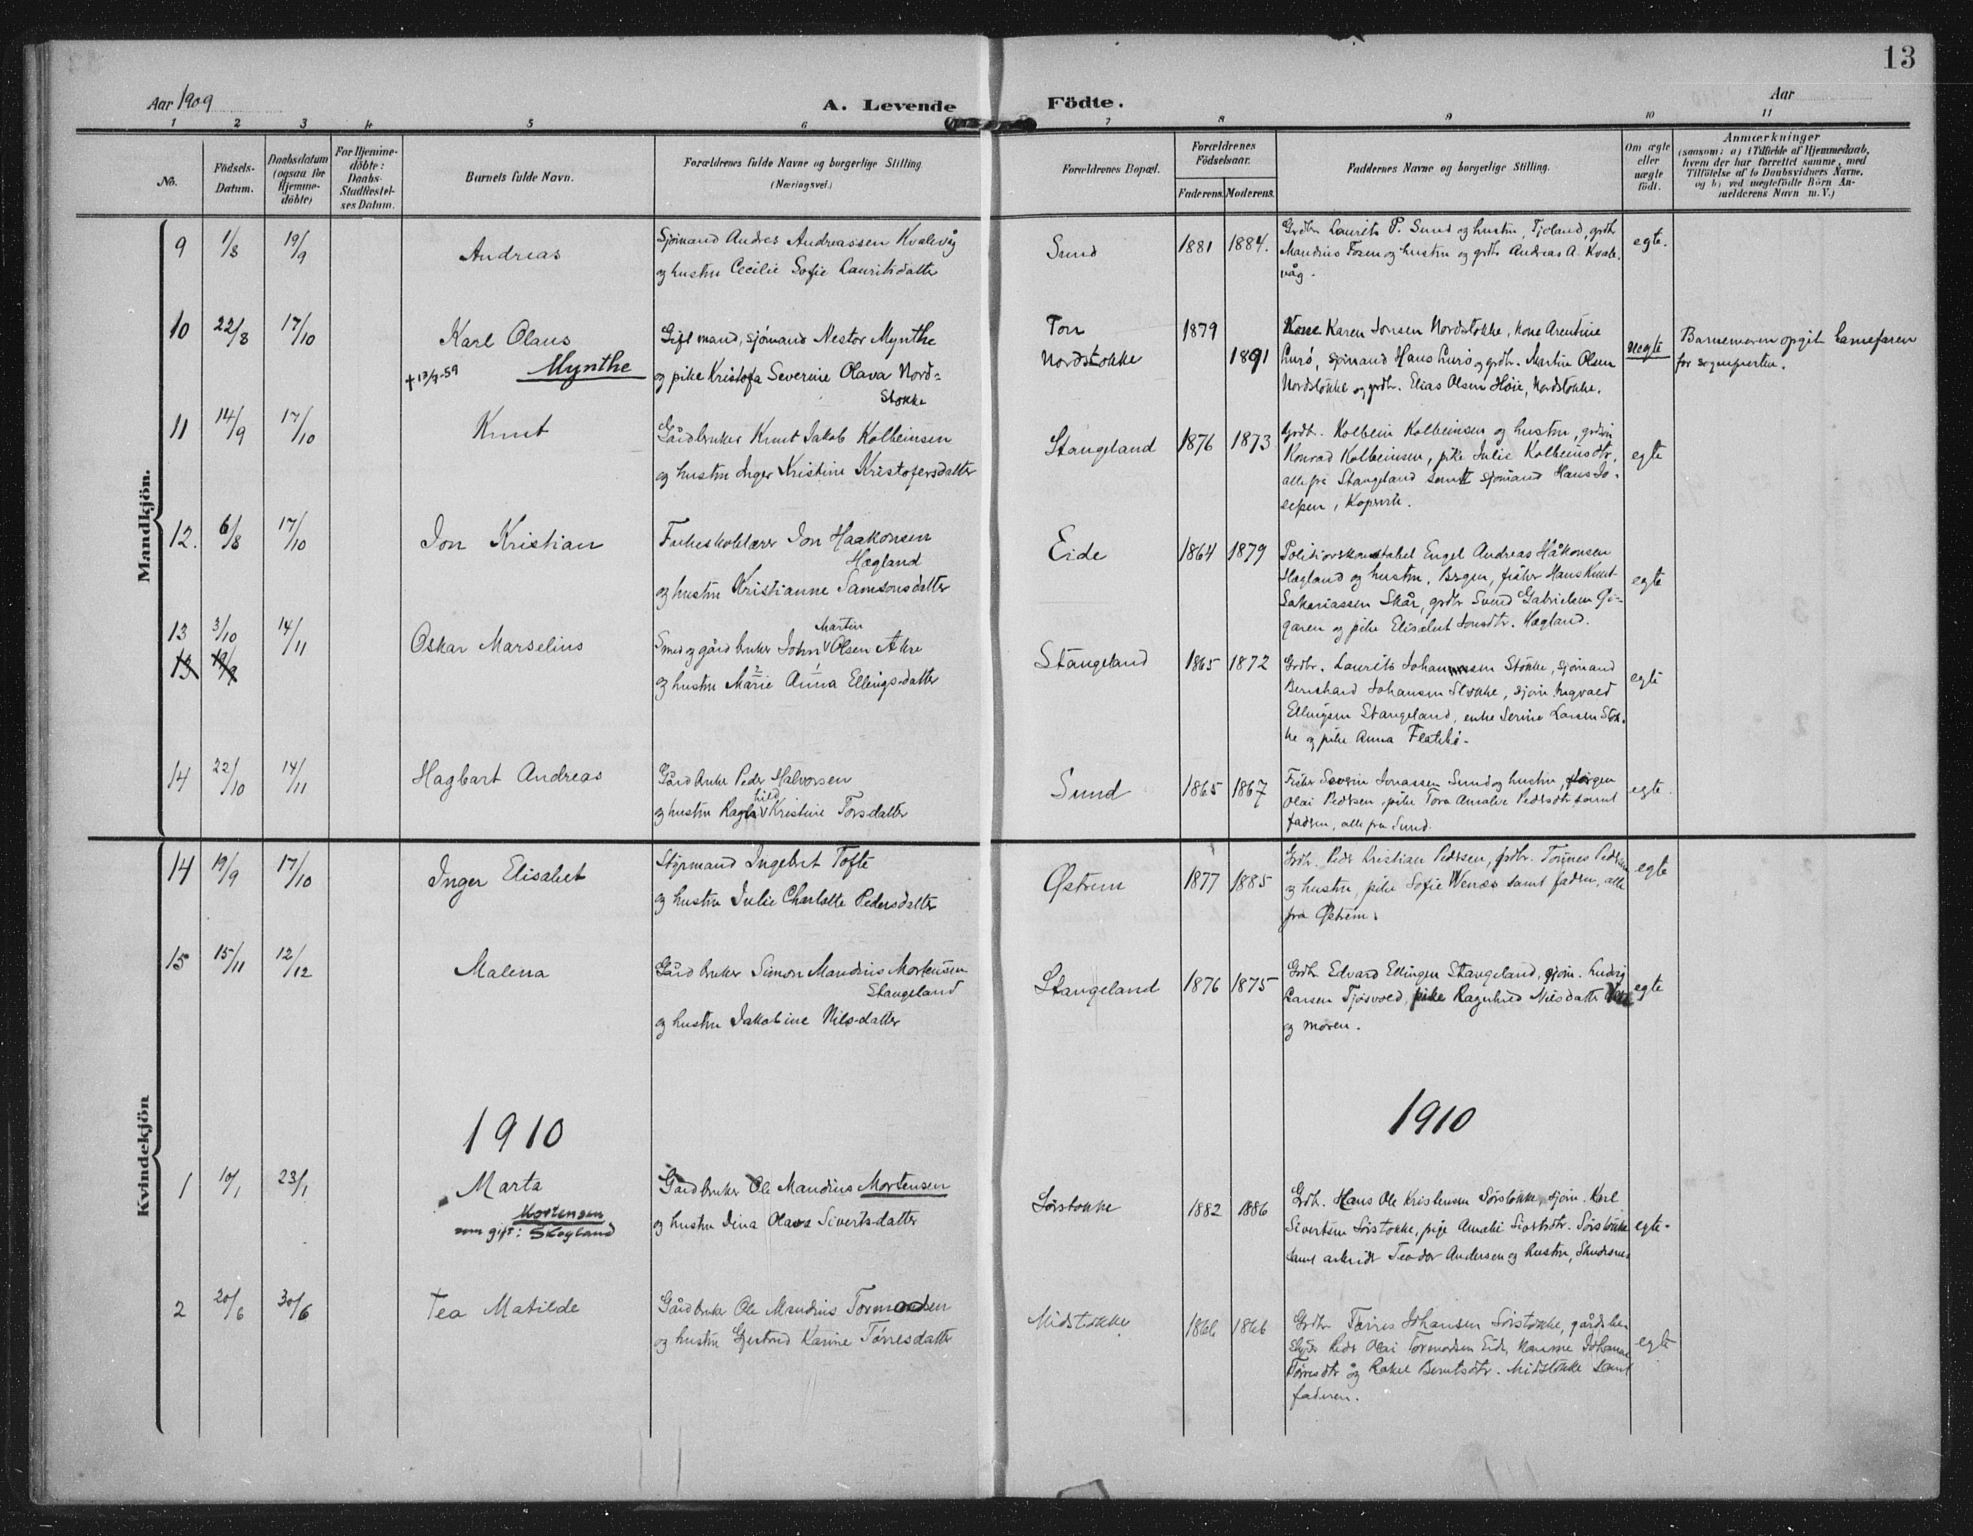 13
Aar 1909
A. Levende Födte.
Aar
1 2 3 4 5 6 7 8 9 10 11
No.
Födsels-Datum.
Daabsdatum (ogsaa for Hjemme-döbte)
For Hjemme-döbte: Daabs-Stadfæstel-ses Datum.
Barnets fulde Navn.
Forældrenes fulde Navne og borgerlige Stilling (Næringsvei.)
Forældrenes Bopæl.
Forældrenes Födselsaar.
Faderens. Moderens.
Faddernes Navne og borgerlige Stilling.
Om ægte eller uægte födt.
Anmærkninger
(saasom: a) i Tilfælde af Hjemmedaab, hvem der har forrettet samme, med Tilföielse af to Daabsvidners Navne, og b) ved uægtefödte Börn An-melderens Navn m. V.)
Mandkjön.
9 1/8 19/9 Andreas
Sjømand Andres Andreassen Kvalevåg
og hustru Cecilie Sofie Lauritsdatter
Sund 1881 1884.
Grdbr. Laurits P. Sund og hustru, Tjoland, grdbr
Mandius Fosen og hustru og grdbr Andreas A. Kvale-
våg.
egte.
10 22/8 17/10 Karl Olaus
Mynthe
+ 13/9-59
Gift mand, sjømand Nestor Mynthe
og pike Kristofa Severine Olava Nord-
stokke
Nordstokke
1879
1891
Kone Karen Jonsen Nordstokke, kone Arentine
Lursø, sjømand Hans Lursø og grdbr. Martin Olsen
Nordstokke og grdbr. Elias Olsen Høie, Nordstokke.
uegte
Barnemoren opgit barnefaren
for sognepresten.
11 14/9 17/10 Knut
Gårdbruker Knut Jakob Kolbeinsen
og hustru Inger Kristine Kristofersdatter
Stangeland 1876 1873
Grdbr. Kolbein Kolbeinsen og hustru,
Konrad Kolbeinsen, pike Julie Kolbeinsdtr,
alle fra Stangeland samt sjømand Hans Jo-
sefsen, Kopervik.
egte
12. 6/8 17/10 Jon Kristian
Folkeskolelærer Jon Haakonsen
Hægland
og hustru Kristianne Samsonsdatter
Eide 1864 1879
Politioverkonstabel Engel Andreas Håkonsen
Hægland og hustru, Bergen, fisker Hans Knut
Sakariassen Skår, grdbr Svend Gabrielsen
og pike Elisabet Jonsdtr. Hægland.
egte
13 3/10 14/11 Oskar Marselius
13
Martin
Smed og gårdbruker John Olsen Akre
og hustru Marie Anna Ellings-datter
Stangeland 1865 1872
Grdbr. Laurits Johannessen Stokke, sjømand
Bernhard Johansen Stokke, sjøm. Ingvald
Ellingsen Stangeland, enke Serine Larsen Stok-
ke og pike Anna Flatebø.
egte
14 22/10 14/11 Hagbart Andreas
Gårdbruker Peder Halvorsen
hild
og hustru Ragn Kristine Torsdatter
Sund 1865 1867
Fisker Severin Jonassen Sund og hustru, Jørgen
Olai Pedersen, pike Tora Amalie Pedersdtr samt
faderen, alle fra Sund.
egte.
Kvindekjön
14 19/9 17/10 Inger Elisabet
Styrmand Ingebret Tofte
og hustru Julie Charlotte Pedersdatter
Østrem 1877 1885
Grdbr. Peder Kristian Pedersen, grdbr. Tønnes Pedersen
og hustru, pike Sofie Wenæs samt faderen, alle
fra Østrem.
egte
15 15/11 12/12 Malena
Gårdbruker Simon Mandius Mortensen
Stangeland
og hustru Jakobine Nils-datter
Stangeland 1876 1875
Grdbr. Edvard Ellingsen Stangeland, sjøm. Ludvig
Larsen Tjøsvold, pike Ragnhild Nilsdatter
og moren.
egte
1910
1910
1 10/1 23/1 Marta
Mortensen
som gift: Skogland
Gårdbruker Ole Mandius Mortensen
og hustru Dina Olava Sivertsdatter
Sørstokke 1882 1886
Grdbr. Hans Ole Kristensen Sørstokke, sjøm. Karl
Sivertsen Sørstokke, pige Amalie Sivertsdtr. Sørstokke
samt arbeider Teodor Andersen og hustru, Skudesnes
egte.
2 20/6 30/6 Tea Matilde
Gårdbruker Ole Mandius Tormodsen
og hustru Gjertrud Karine Tørresdatter
Midstokke 1866 1866
Grdbr Tørres Johansen Sørstokke, gårdsbe-
styrer Peder Olai Tormodsen Eide, konerne Johanne
Tørresdtr og Rakel Berntsdtr. Midstokke samt
faderen.
egte